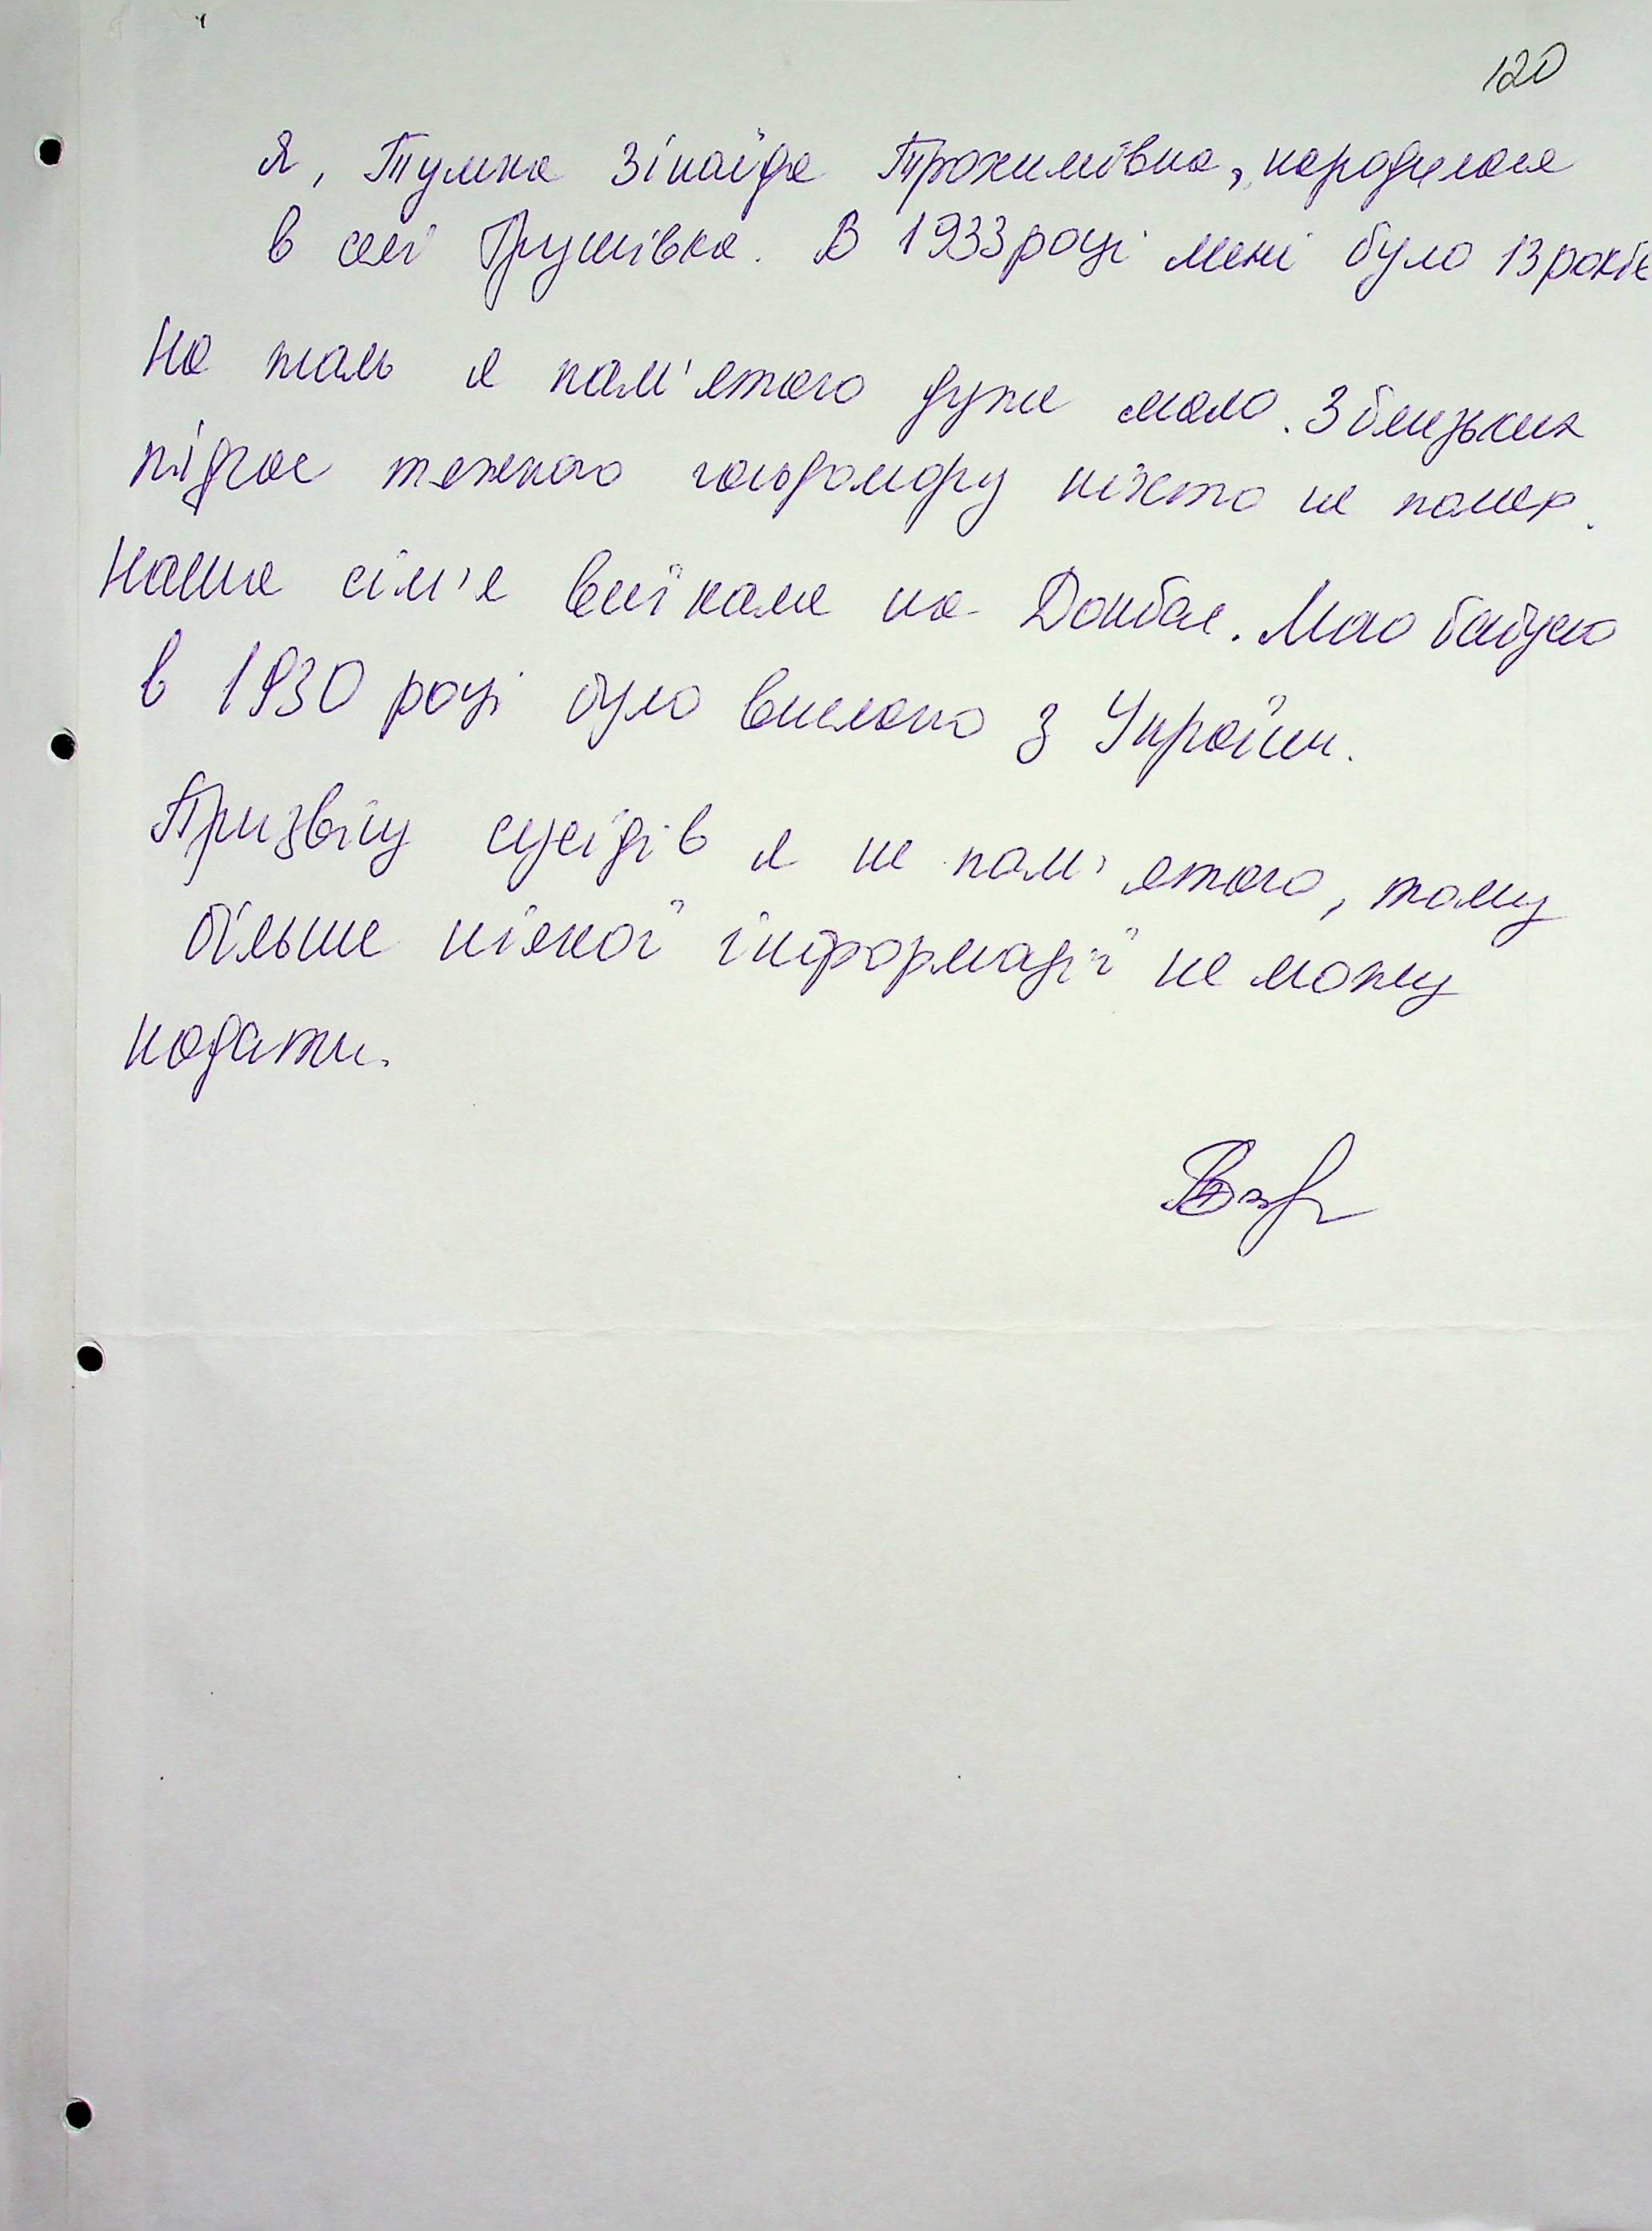 120
Я, Тумка Зінаїда Трохимівна, народилася
в селі Грушівка. В 1933 році мені було 13 років
На жаль я пам'ятаю дуже мало. З близьких
підчас тяжкого гольдомору ніхто не помер.
Наша сім'я виїхала на Донбас. Мою бабусю
в 1930 році було вислано з України.
Призвіщ сусідів я не пам'ятаю, тому
більше ніякої інформації не можу
надати.